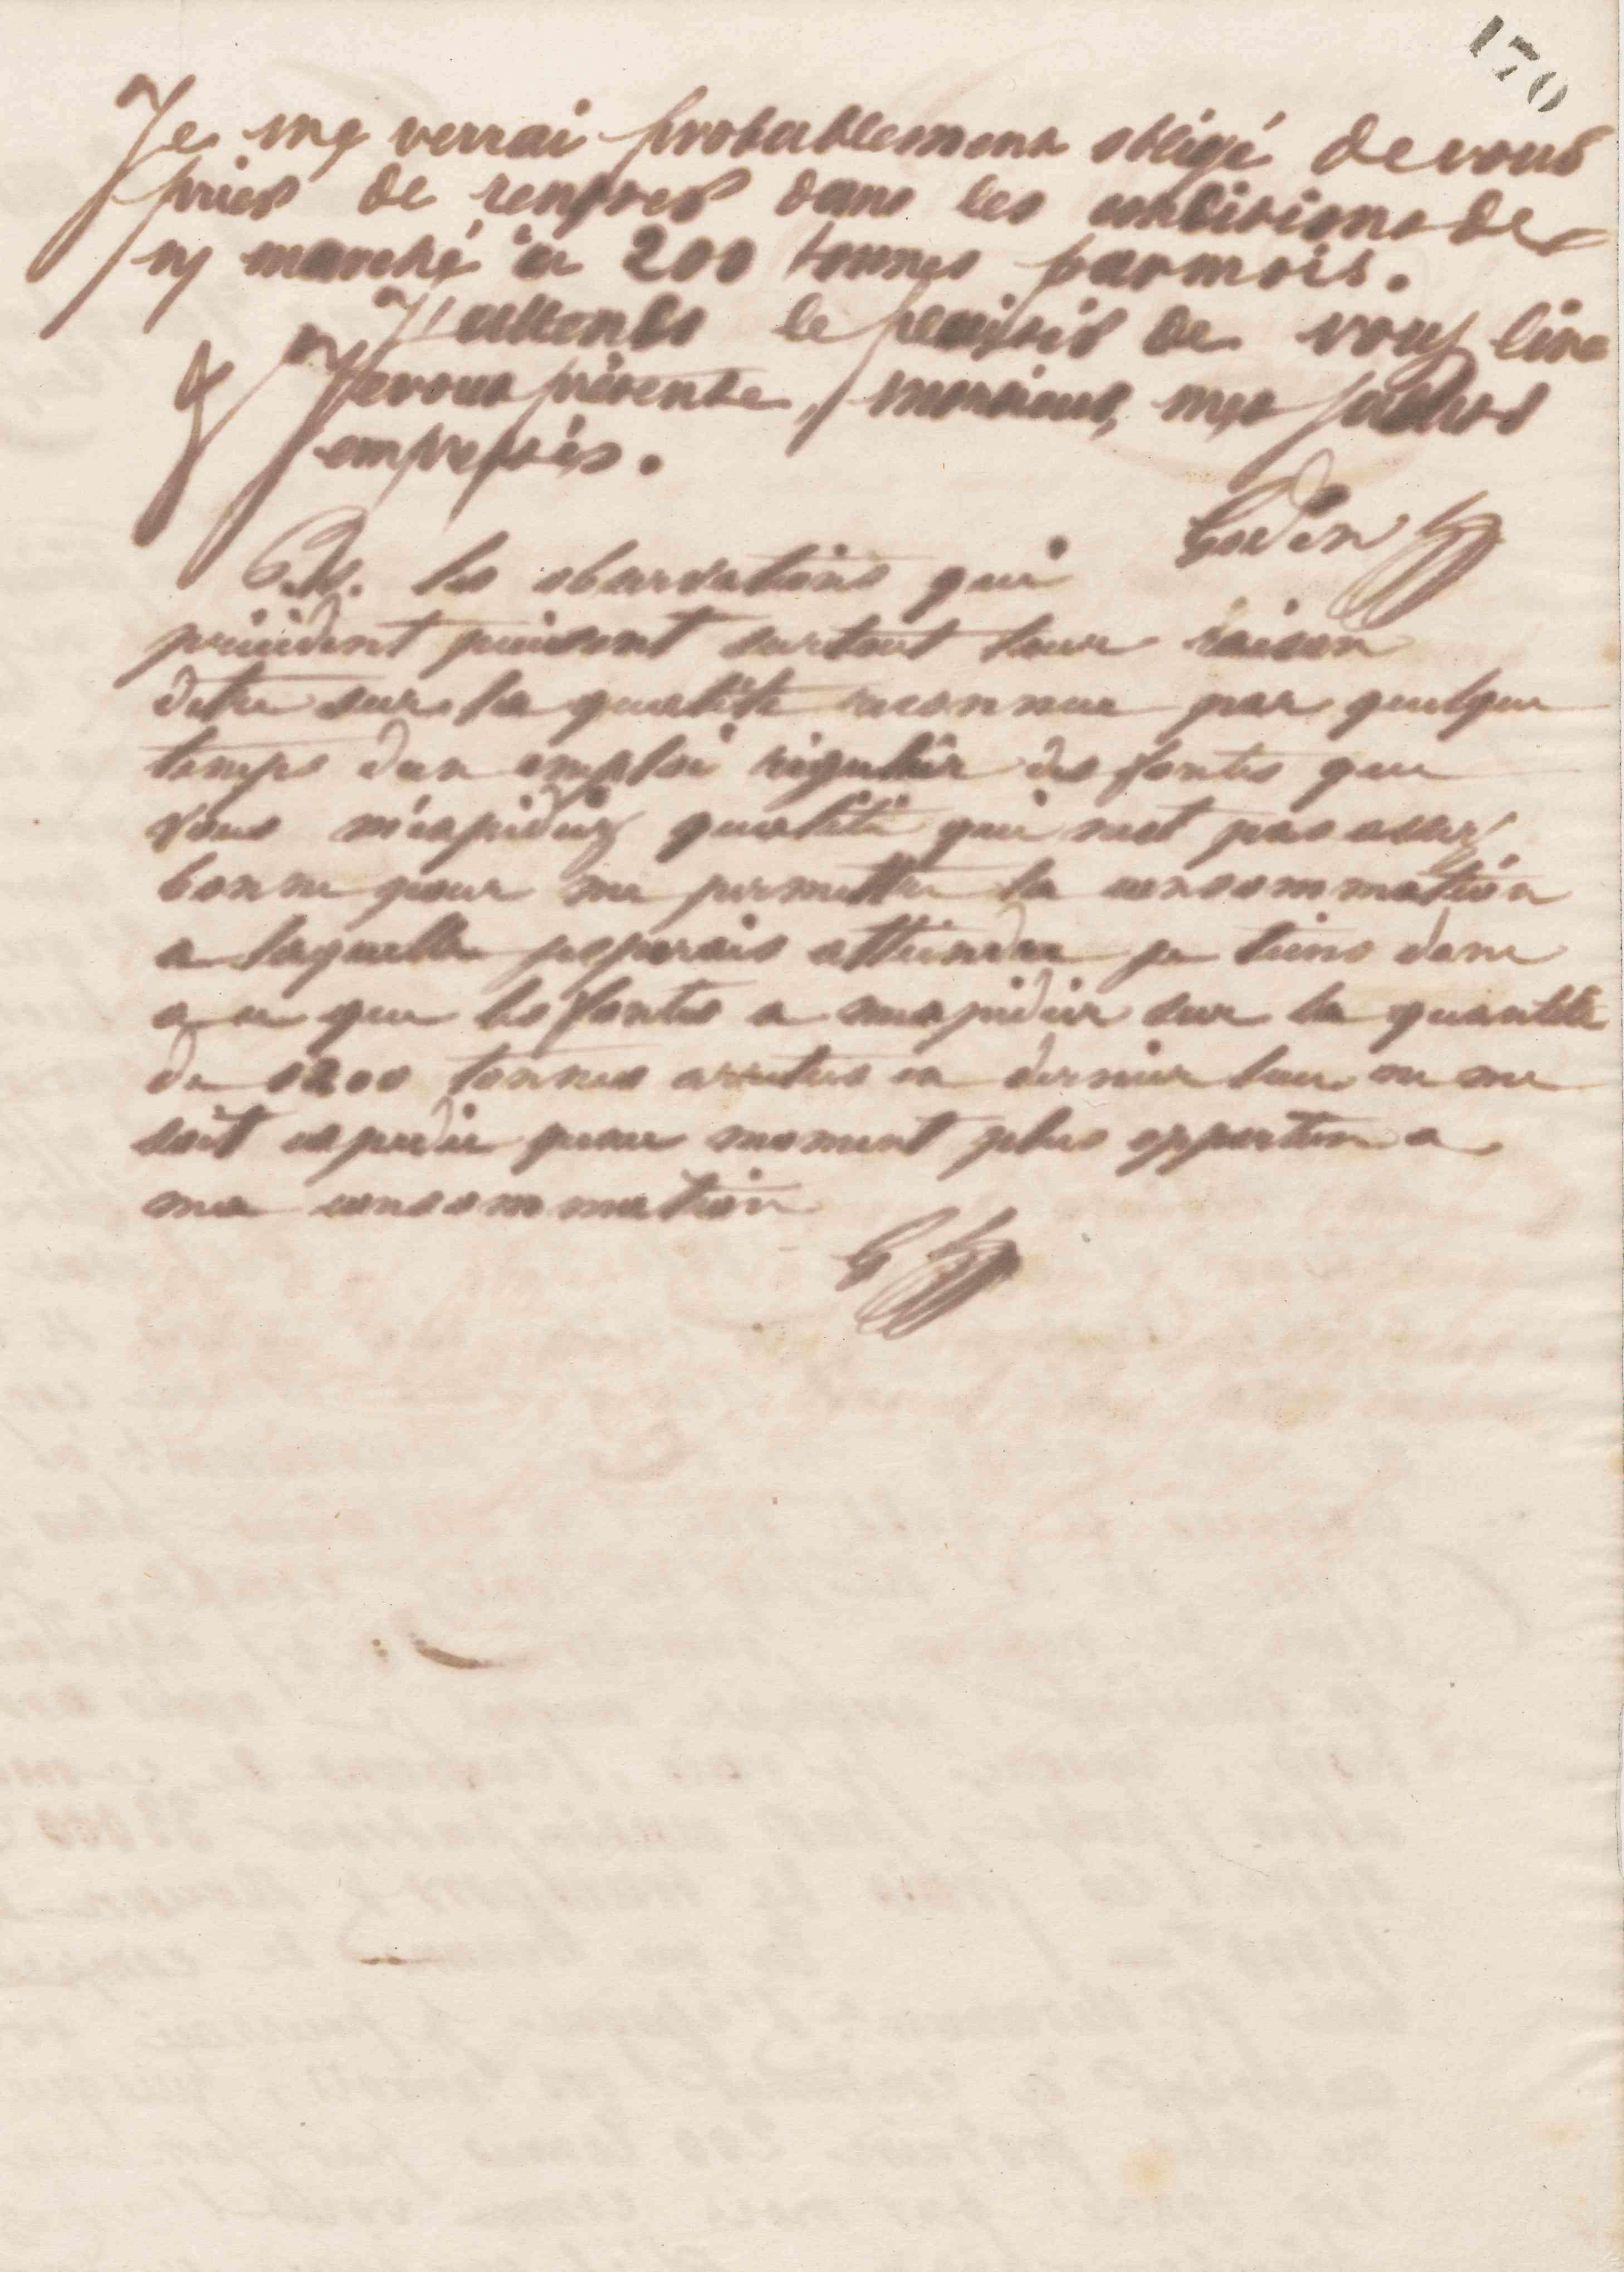 170
Je me verrai probablement obligé de vous
prier de rentrer dans les conditions de
marché à 200 tonnes par mois.
J'attends le plaisir de vous lire
& Je vous présente, monsieur, mes saluts
empressés.
Godin
P.S. les observations qui
précèdent puisent surtout leur raison
detre sur la qualité reconnue par quelque
temps dun emploi régulier des fontes que
vous m'expediez qualité qui nest pas assez
bonne pour me permettre la consommation
a laquelle jesperais atteindre je tiens donc
a ce que les fontes a mexpedier sur la quantité
de 1200 tonnes arretes en dernier lieu ne me
soit expedie quau moment plus opportun a
ma consommation
G